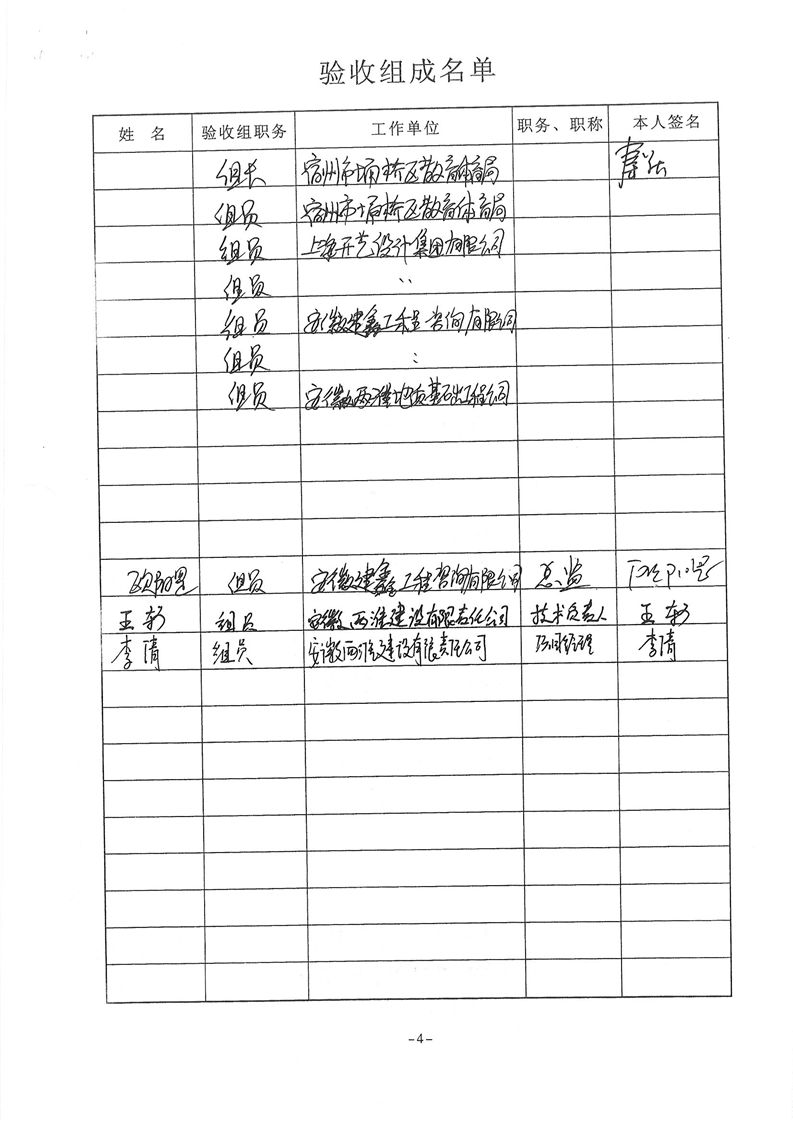 验收组成名单
姓 名 验收组职务 工作单位 职务、职称 本人签名
组长 宿州市埇桥区教育体育局
组员 宿州市埇桥区教育体育局
组员 上海开艺设计集团有限公司
组员 〃
组员 安徽建鑫工程咨询有限公司
组员 〃
组员 安徽两淮地质基础工程公司
组员 安徽建鑫工程咨询有限公司 总监
王轩 组员 安徽两淮建设有限责任公司 技术负责人 王轩
李清 组员 安徽两淮建设有限责任公司 项目经理 李清
-4-